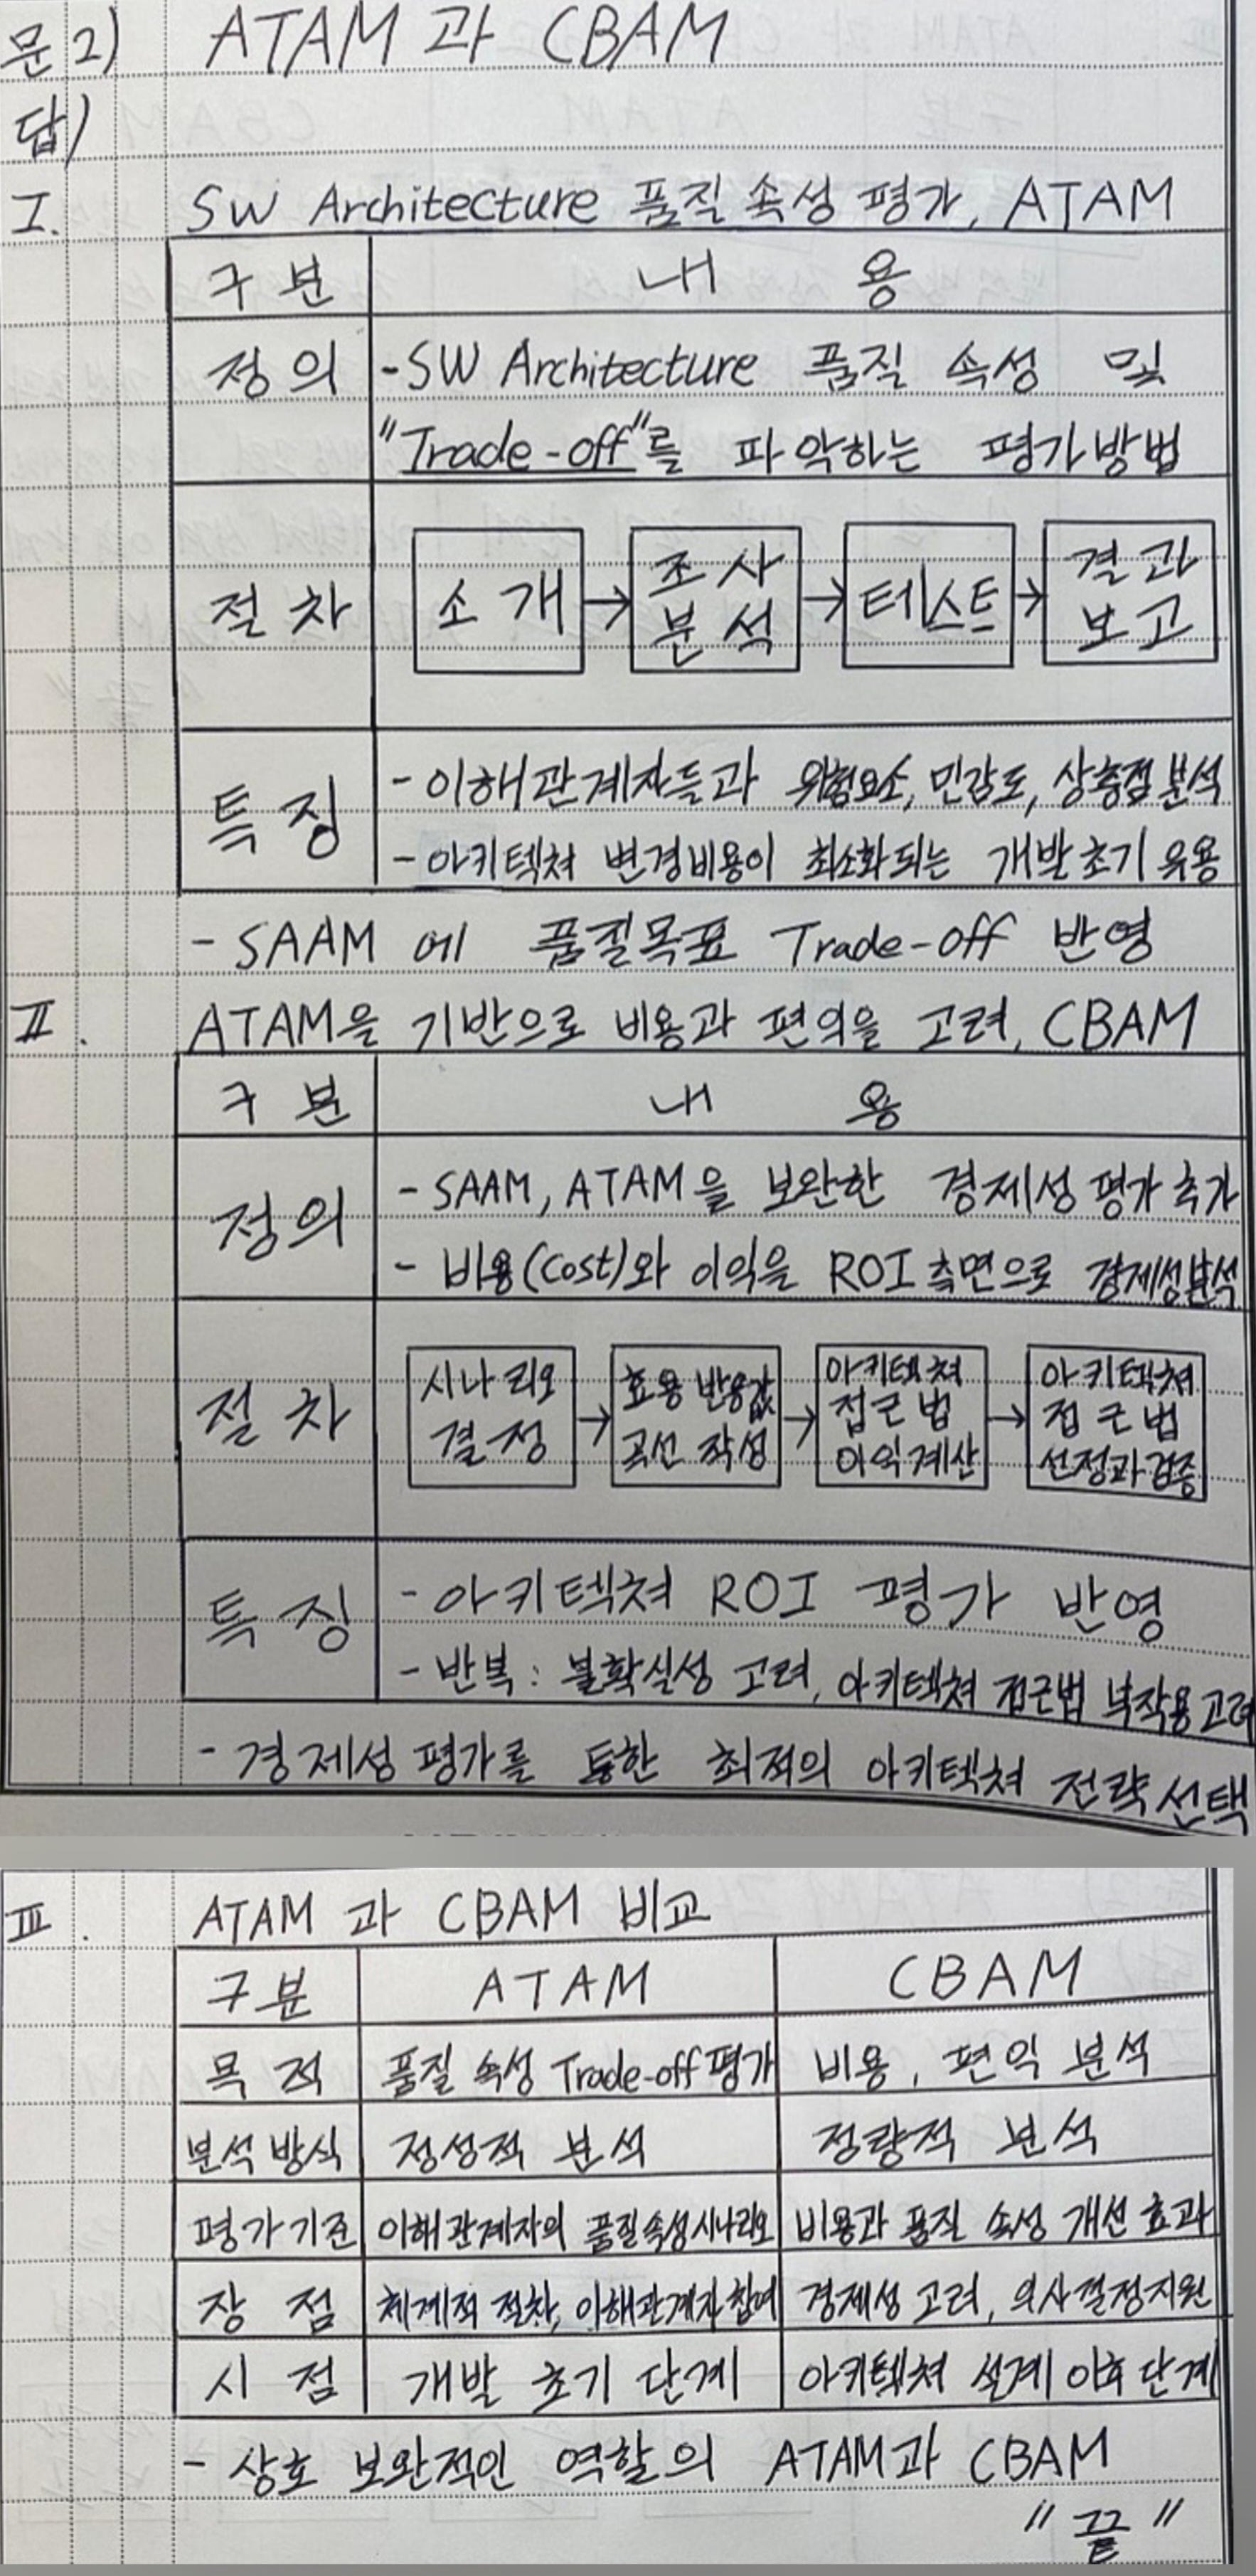 문2) ATAM 과 CBAM
답)
I. SW Architecture 품질 속성 평가, ATAM
구 분 내 용
정 의 -SW Architecture 품질 속성 및
"Trade-off"를 파악하는 평가방법
절 차 소 개 → 조사 분석 → 테스트 → 결과 보고
특 징 - 이해관계자들과 위험요소, 민감도, 상충점 분석
- 아키텍쳐 변경비용이 최소화되는 개발초기 유용
- SAAM 에 품질목표 Trade-off 반영
II. ATAM을 기반으로 비용과 편익을 고려, CBAM
구 분 내 용
정 의 - SAAM, ATAM을 보완한 경제성 평가 추가
- 비용(Cost)와 이익을 ROI 측면으로 경제성분석
절 차 시나리오 결정 → 효용 반응값 곡선 작성 → 아키텍쳐 접근법 이익계산 → 아키텍쳐 접근법 선정과 검증
특 징 - 아키텍쳐 ROI 평가 반영
- 반복 : 불확실성 고려, 아키텍쳐 접근법 부작용 고려
- 경제성 평가를 통한 최적의 아키텍쳐 전략 선택
III. ATAM 과 CBAM 비교
구분 ATAM CBAM
목 적 품질 속성 Trade-off 평가 비용, 편익 분석
분석 방식 정성적 분석 정량적 분석
평가 기준 이해관계자의 품질속성시나리오 비용과 품질 속성 개선 효과
장 점 체계적 절차, 이해관계자 참여 경제성 고려, 의사결정지원
시 점 개발 초기 단계 아키텍쳐 설계 이후 단계
- 상호 보완적인 역할의 ATAM과 CBAM
"끝"